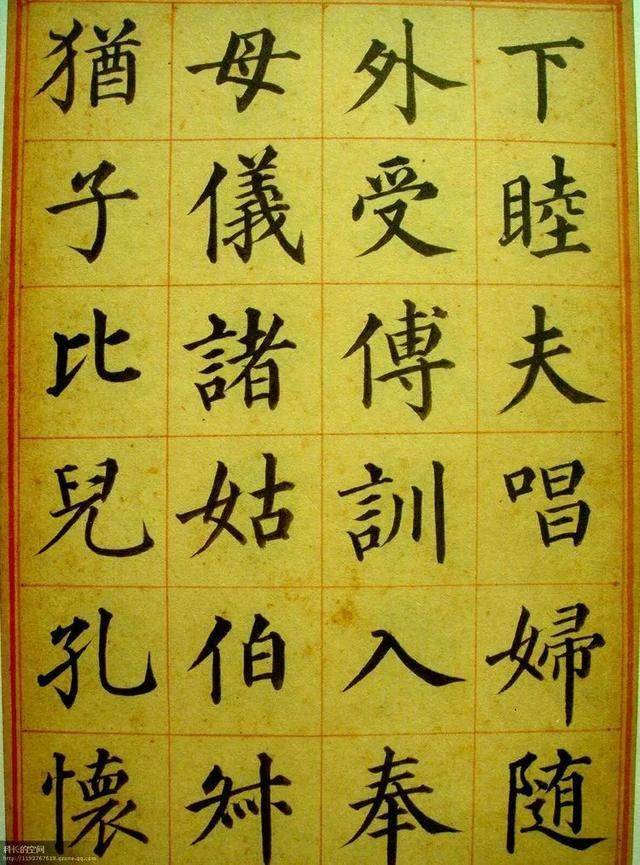 下睦夫唱婦随
外受傅訓入奉
母儀諸姑伯叔
猶子比兒孔懷
科长的空间
http://1193767618.qzone.qq.com